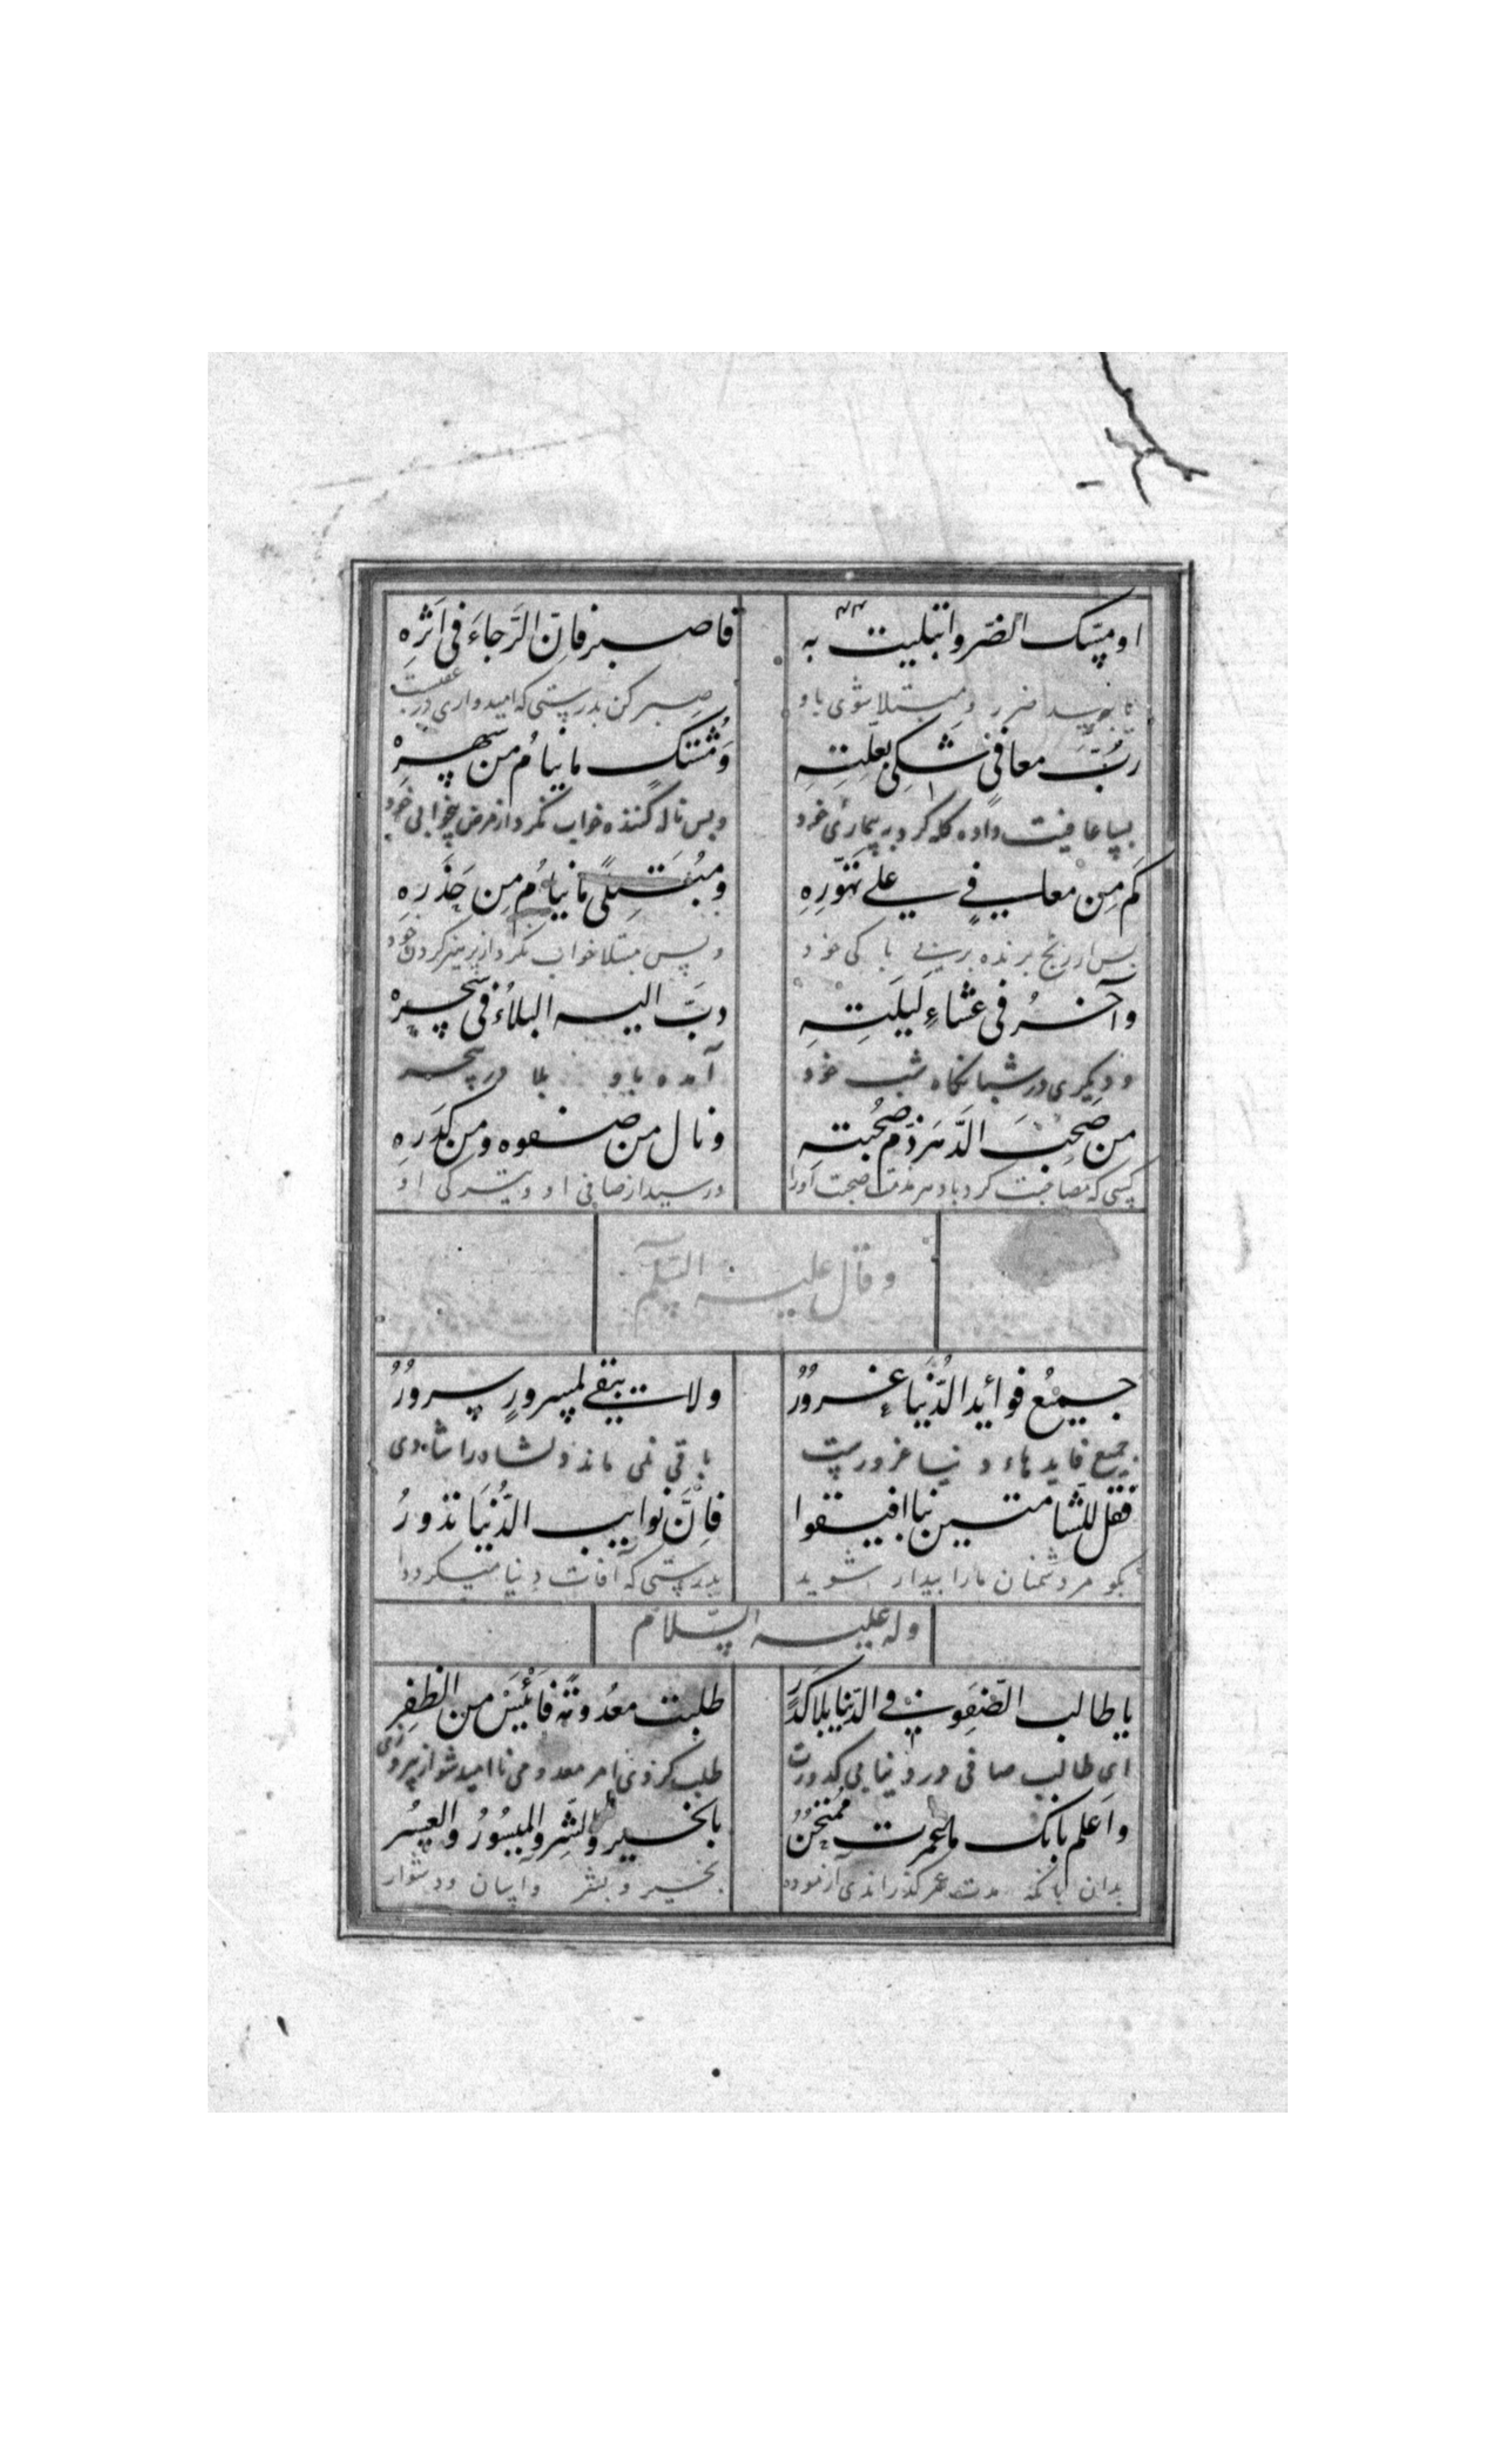 او مسّک الضّر وابتلیت به فاصبر فاِنّ الرَّجاءَ فی اَثرِهِ
تا بتورسد ضرر و مبتلا شوی باو صبر کن بدرستی که امیدواری در عقبست
رُبَّ معافیً شکی بعلّتِهِ وَمُشتکٍ ما ینامُ من سهرِهْ
بسا عافیت داده گله کرد به بیماری خود و بس ناله کننده خواب نکرد از مرض بیخوابی خود
کم مِن معافیً علی تهوّرِهِ ومُبتلیً ما ینامُ مِن حَذَرِهِ
بس از رنج برنده برینی باکی خود و بس مبتلا خواب نکرد از پرهیز کردن خود
وآخرُ فی عشاءِ لَیلَتِهِ دبَّ الیه البلاءُ فی سحرِهْ
و دیگری در شبانگاه شب خود آمده باو بلا در سحر
من صَحِبَ الدَّهرَ ذمّ صُحبته ونال من صفوه ومن کَدَرِهِ
کسی که مصاحبت کرد با دهر مذمت صحبت اورا و رسید از صافی او و تیرگی او
وقال علیه السّلم
جمیعُ فوائد الدُّنیاءِ غرورٌ ولا یبقی لمسرورٍ سرورُ
جمیع فایدهاء دنیا غرورست باقی نمی ماند دلشاد را شادی
فقل للشامتین بنا افیقوا فاِنَّ نوایب الدُّنیَا تدورُ
بگو مر دشمنان مارا بیدار شوید بدرستی که آفات دنیا میگردد
وله علیه السّلام
یا طالب الصّفوِ فی الدّنیا بلا کَدَرٍ طلبت معدومةً فَائیَسْ من الظفرِ
ای طالب صافی در دنیا بی کدورت طلب کردی امر معدومی ناامید شو از پیروزی
واعلم بانک ما عمرت مُمتحنٌ بالخیر والشّرِ والمیسُورُ والعِسُر
بدان بانکه مدت عمر گذراندی آزموده بخیر و بشر وآسان ودشوار